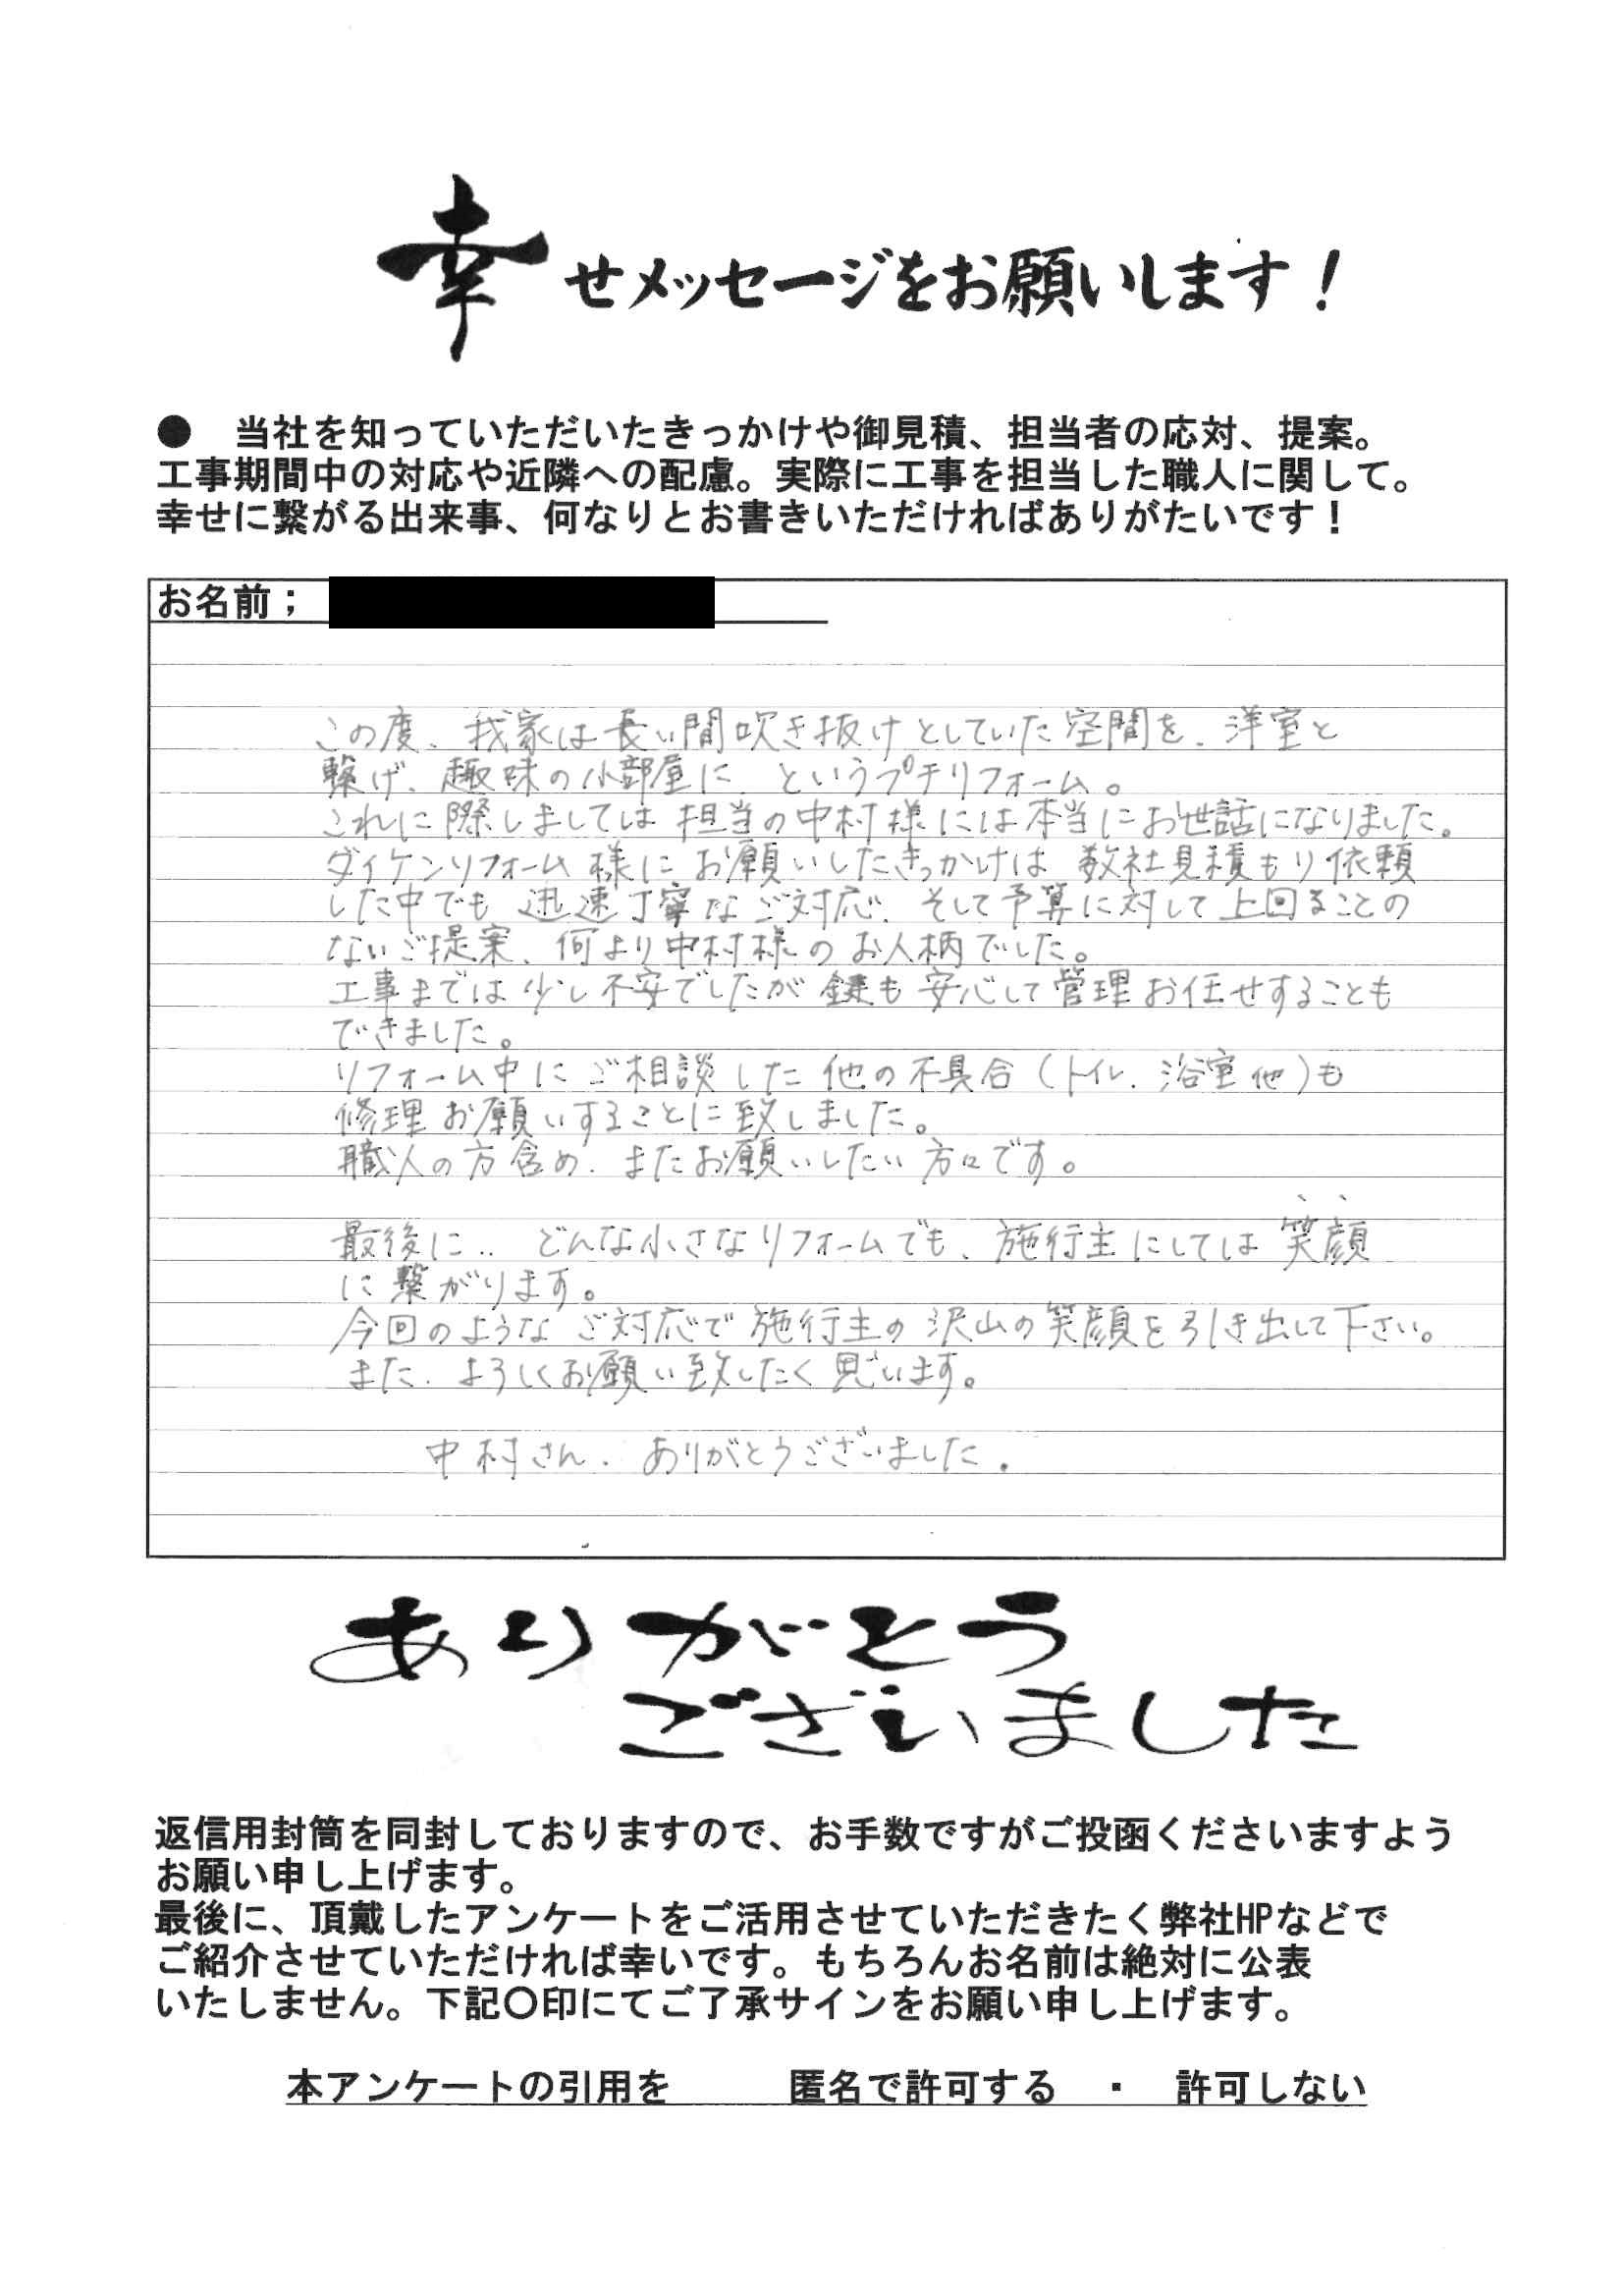 幸せメッセージをお願いします！
●　当社を知っていただいたきっかけや御見積、担当者の応対、提案。
工事期間中の対応や近隣への配慮。実際に工事を担当した職人に関して。
幸せに繋がる出来事、何なりとお書きいただければありがたいです！
お名前；
この度、我家は長い間吹き抜けとしていた空間を、洋室と
繋げ、趣味の小部屋に、というプチリフォーム。
これに際しましては担当の中村様には本当にお世話になりました。
ダイケンリフォーム様にお願いしたきっかけは、数社見積もり依頼
した中でも迅速丁寧なご対応、そして予算に対して上回ることの
ないご提案、何より中村様のお人柄でした。
工事までは少し不安でしたが鍵も安心して管理お任せすることも
できました。
リフォーム中にご相談した他の不具合（トイレ、浴室他）も
修理お願いすることに致しました。
職人の方含め、またお願いしたい方々です。
最後に‥どんな小さなリフォームでも、施行主にしては笑顔
に繋がります。
今回のようなご対応で施行主の沢山の笑顔を引き出して下さい。
また、よろしくお願い致したく思います。
中村さん、ありがとうございました。
ありがとう
ございました
返信用封筒を同封しておりますので、お手数ですがご投函くださいますよう
お願い申し上げます。
最後に、頂戴したアンケートをご活用させていただきたく弊社HPなどで
ご紹介させていただければ幸いです。もちろんお名前は絶対に公表
いたしません。下記〇印にてご了承サインをお願い申し上げます。
本アンケートの引用を　　　匿名で許可する　・　許可しない